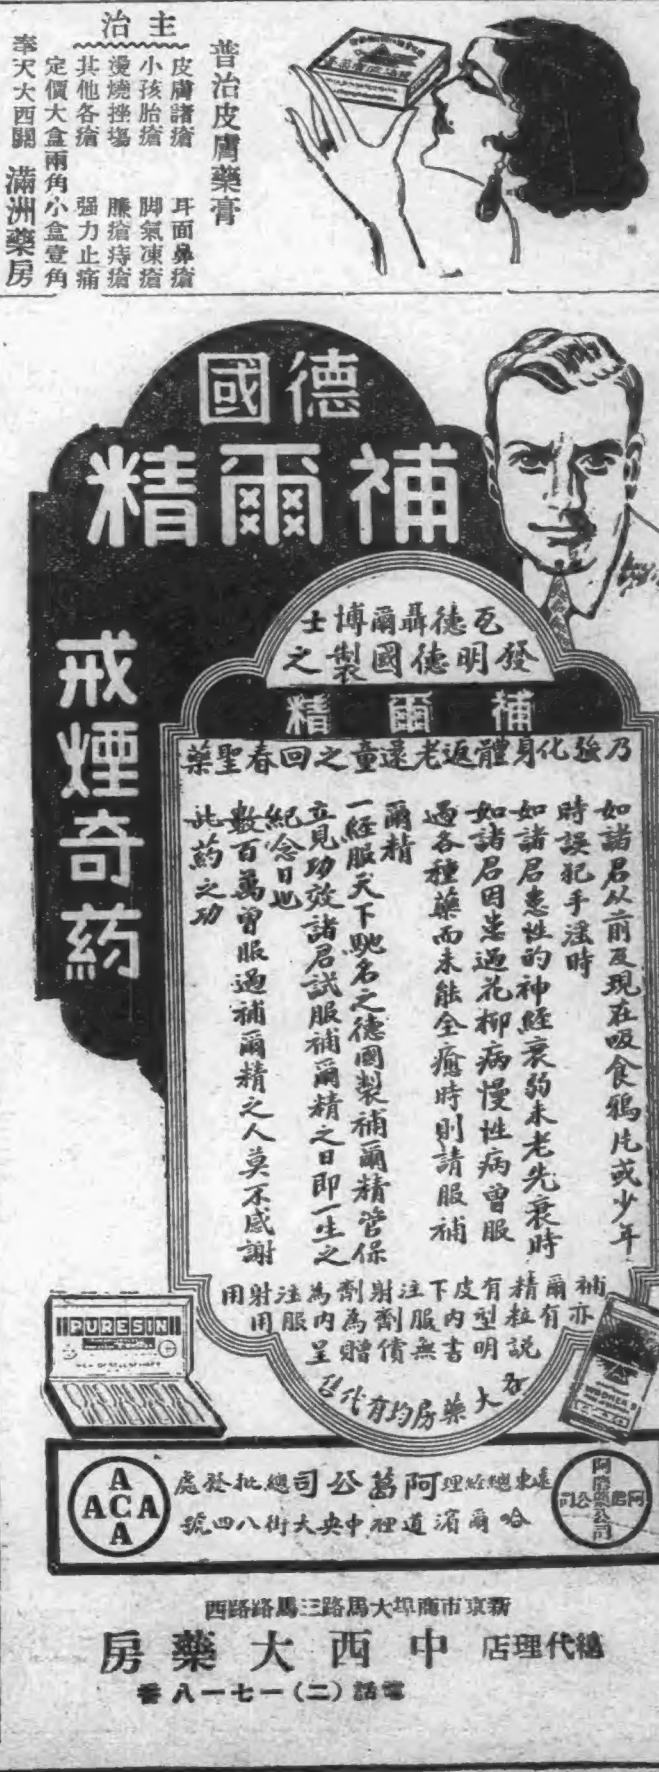 普治皮膚藥膏
主治
皮膚諸瘡 耳面鼻瘡
小孩胎瘡 脚氣凍瘡
燙燒挫塲 臁瘡痔瘡
其他各瘡 强力止痛
定價大盒兩角小盒壹角
奉天大西關 滿洲藥房
德國
補爾精
戒煙奇药
瓦德聶爾博士
發明德國製之
補爾精
乃強化身體返老還童之回春聖藥
如諸君从前及現在吸食鴉片或少年
時誤犯手淫時
如諸君患性的神經衰弱未老先衰時
如諸君因患過花柳病慢性病曾服
過各種藥而未能全癒時則請服補
爾精
一經服天下馳名之德國製補爾精管保
立見功效諸君試服補爾精之日即一生之
紀念日也
數百萬曾服過補爾精之人莫不感謝
此药之功
補爾精有皮下注射劑為注射用
亦有粒型內服劑為內服用
說明書無價贈呈
各大藥房均有代售
PURESIN
遠東總經理阿葛公司總批發處
哈爾濱道裡中央大街八四號
A
ACA
A
新京市商埠大馬路三馬路路西
總代理店 中西大藥房
電話(二)一七一八番